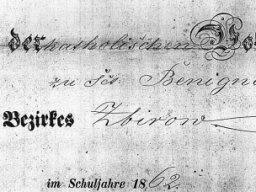 der katholischen Vo
zu sct. Benigna
Bezirkes Zbirow
im Schuljahre 1862.